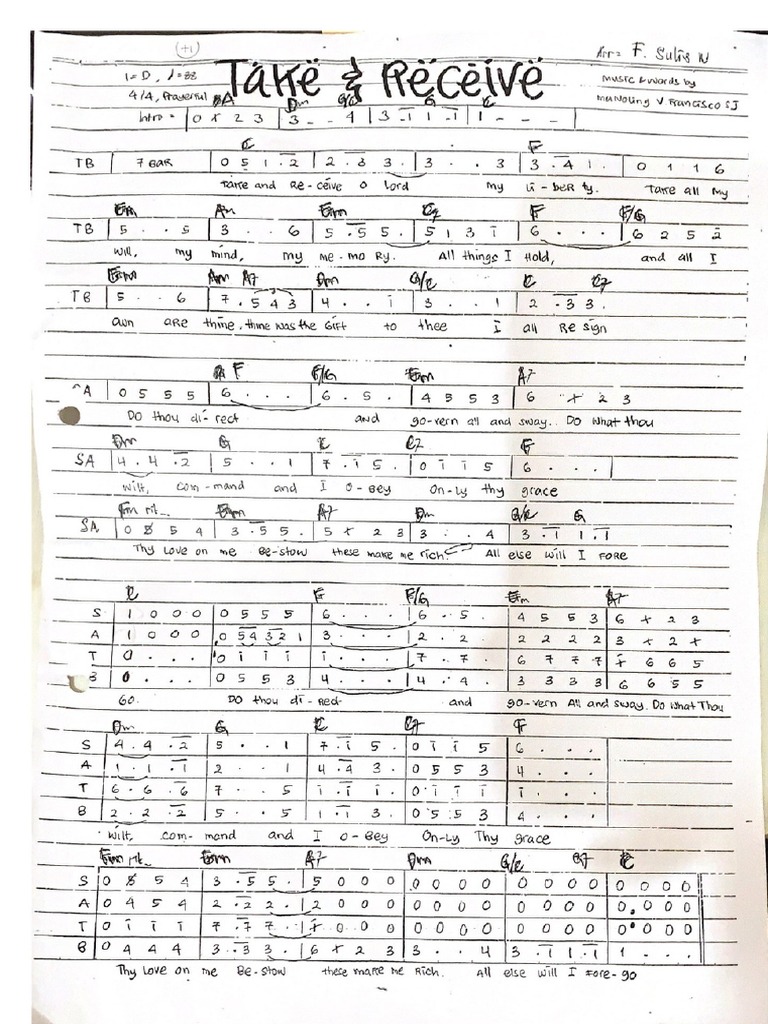 (+1)
Arr = F. Sulis N
1 = D, ♩= 88
TAKE & RECEIVE
4/4, Prayerful
Music & words by
Manoling V Francisco SJ
A Dm G/C G C
Intro = 0 x 2 3 | 3 . . 4 | 3 . 1 1 . 1 | 1 . . .
C F
TB | 7 BAR | 0 5 1 . 2 | 2 . 3 3 . | 3 . . 3 | 3 . 4 1 . | 0 1 1 6
Take and Re-ceive O Lord my Li-beR ty. Take all My
Em Am Em C7 F F/G
TB | 5 . . 5 | 3 . . 6 | 5 . 5 5 . | 5 1 3 1 | 6 . . . | 6 2 5 2
will, my mind, my me-mo Ry. All things I Hold, and all I
Em Am A7 Dm G/C C C7
TB | 5 . . 6 | 7 . 5 4 3 | 4 . . 1 | 3 . . 1 | 2 . 3 3 .
own are thine, thine was the Gift to thee I all Re sign
F F/G Em A7
SA | 0 5 5 5 | 6 . . . | 6 . 5 . | 4 5 5 3 | 6 x 2 3
Do thou di-rect and go-vern all and sway.. Do what thou
Dm G C C7 F
SA | 4 . 4 . 2 | 5 . . 1 | 7 . 1 5 . | 0 1 1 5 | 6 . . .
wilt, com-mand and I O-Bey On-Ly thy grace
Fm rit.. Em A7 Dm G/C G
SA | 0 8 5 4 | 3 . 5 5 . | 5 x 2 3 | 3 . . 4 | 3 . 1 1 . 1
Thy Love on me Be-stow these make me rich. All else will I FORE
C F F/G Em A7
S | 1 0 0 0 | 0 5 5 5 | 6 . . . | 6 . 5 . | 4 5 5 3 | 6 x 2 3
A | 1 0 0 0 | 0 5 4 3 2 1 | 3 . . . | 2 . 2 . | 2 2 2 2 | 3 x 2 x
T | 0 . . . | 0 1 1 1 | 1 . . . | 7 . 7 . | 6 7 7 7 | 7 6 6 5
B | 0 . . . | 0 5 5 3 | 4 . . . | 4 . 4 . | 3 3 3 3 | 6 6 5 5
Go. Do thou di-Rect and go-vern All and sway. Do What Thou
Dm G C C7 F
S | 4 . 4 . 2 | 5 . . 1 | 7 . 1 5 . | 0 1 1 5 | 6 . . .
A | 1 . 1 . 1 | 2 . . 1 | 4 . 4 3 . | 0 5 5 3 | 4 . . .
T | 6 . 6 . 6 | 7 . . 5 | 1 . 1 1 . | 0 1 1 1 | 1 . . .
B | 2 . 2 . 2 | 5 . . 5 | 1 . 1 3 . | 0 5 5 3 | 4 . . .
wilt, com-mand and I O-Bey On-Ly Thy grace
Fm rit.. Em A7 Dm G/C G7 C
S | 0 8 5 4 | 3 . 5 5 . | 5 0 0 0 | 0 0 0 0 | 0 0 0 0 | 0 0 0 0
A | 0 4 5 4 | 2 . 2 2 . | 2 0 0 0 | 0 0 0 0 | 0 0 0 0 | 0 0 0 0
T | 0 1 1 1 | 7 . 7 7 . | 7 0 0 0 | 0 0 0 0 | 0 0 0 0 | 0 0 0 0
B | 0 4 4 4 | 3 . 3 3 . | 6 x 2 3 | 3 . . 4 | 3 . 1 1 . 1 | 1 . . .
Thy Love on me Be-stow these make me Rich. All else will I Fore-go